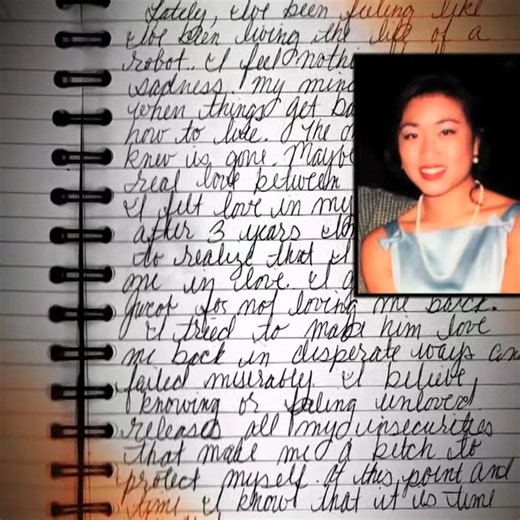 Lately, I've been feeling like
I've been living the life of a
robot. I feel nothi
sadness. My mind
when things get ba
how to live. The o
knew is gone. Maybe
real love between
I felt love in my
after 3 years
to realize that I
one in love. I
for not loving me back.
I tried to make him love
me back in desperate ways an
failed miserably. I believe,
knowing or feeling unloved
releases all my insecurities
that make me a bitch to
protect myself. At this point and
time I know that it is time